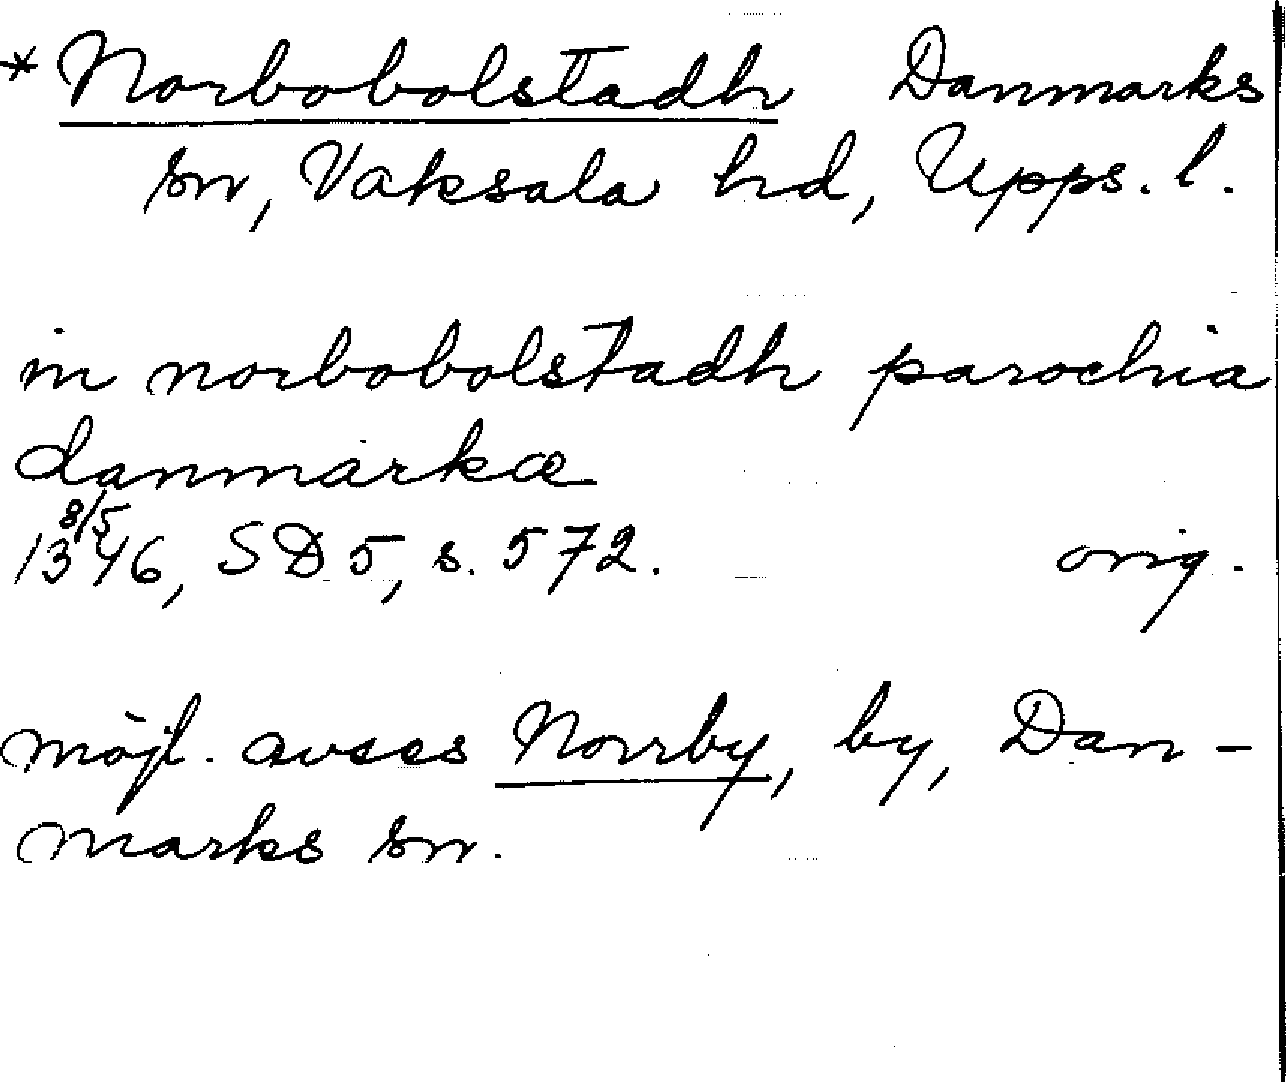 * Norbobolstadh Danmarks
sn, Vaksala hd, Upps. l.
in norbobolstadh parochia
danmarkæ
8/5
1346, SD 5, s. 572. orig.
möjl. avses Norrby, by, Dan-
marks sn.